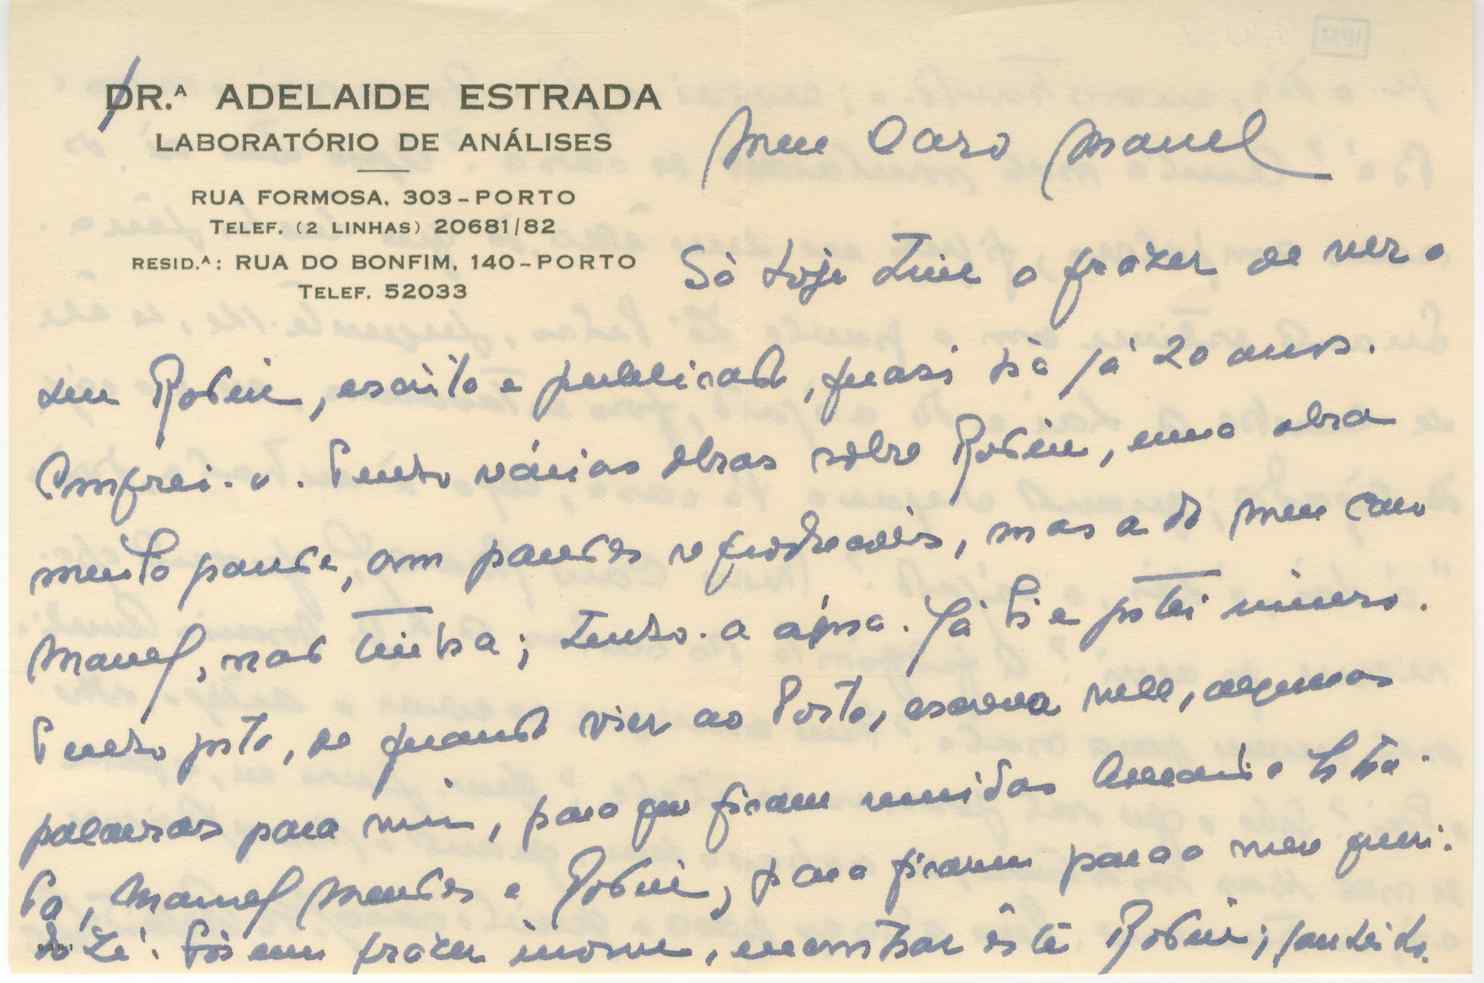 DR.ª ADELAIDE ESTRADA
LABORATÓRIO DE ANÁLISES
RUA FORMOSA, 303-PORTO
TELEF. (2 LINHAS) 20681/82
RESID.ª: RUA DO BONFIM, 140-PORTO
TELEF. 52033
Meu Caro Manel
Só hoje tive o prazer de ver o
seu Rodin, escrito e publicado, quasi há já 20 anos.
Comprei-o. Tenho várias obras sobre Rodin, uma obra
muito grande, com grandes reproduções, mas a do meu caro
Manel, não tinha; tenho-a agora. Já li e gostei imenso.
Tenho gosto, de quando vier ao Porto, escreva nele, algumas
palavras para mim, para que ficam unidos
Manel Mendes e Rodin, para ficarem para o meu queri-
do Zé. Foi um prazer enorme, encontrar êste Rodin;